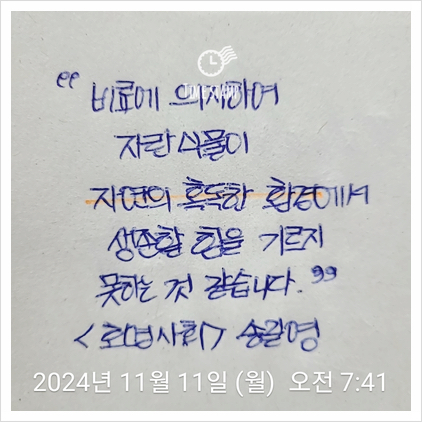 TIMESTAMP
"비료에 의지하여
자란 식물이
자연의 혹독한 환경에서
생존할 힘을 기르지
못하는 것 같습니다."
<호명사회> 송길영
2024년 11월 11일 (월) 오전 7:41